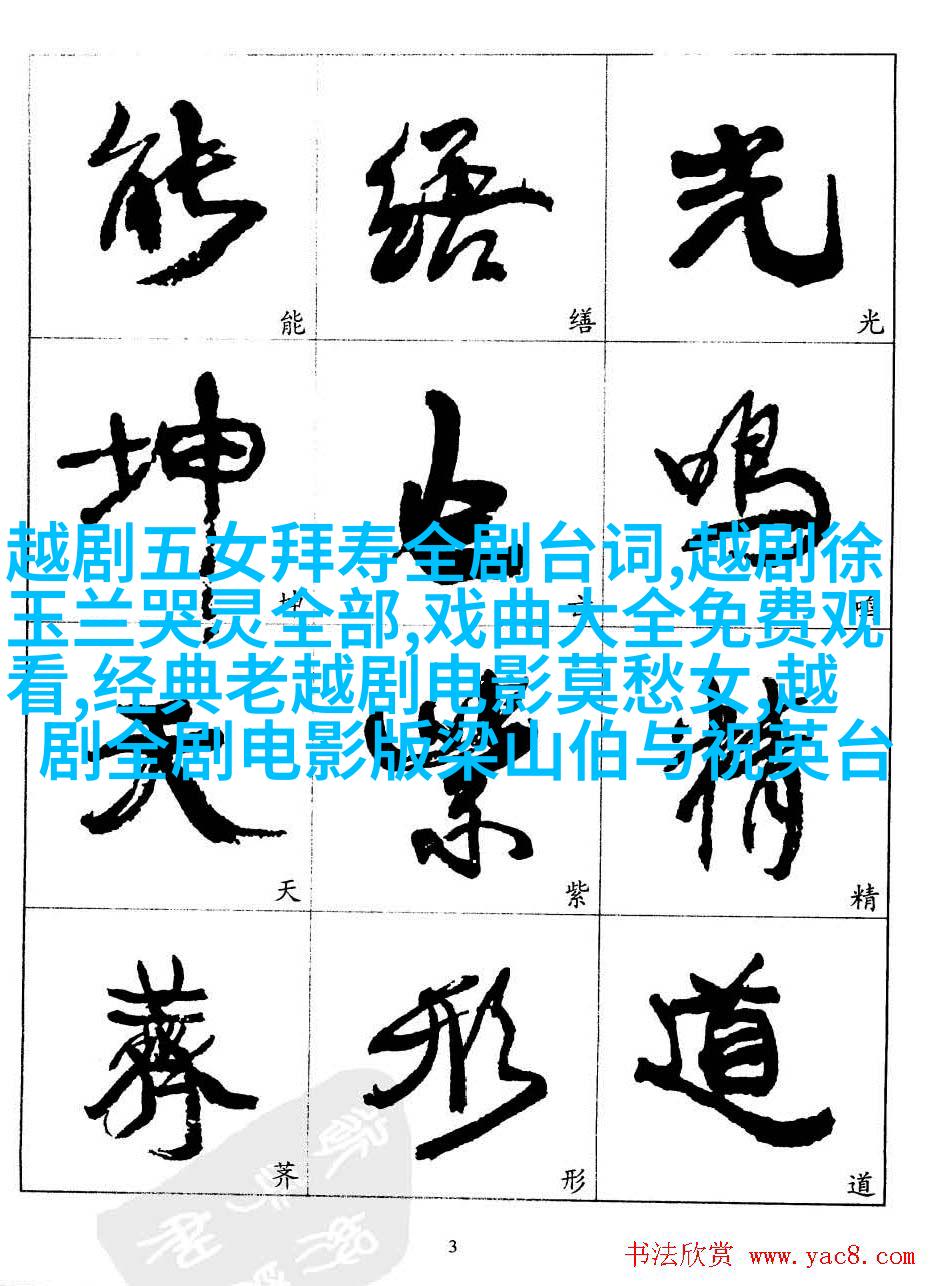 能 繕 光
能 缮 光
坤 鳴
越剧五女拜寿全剧台词,越剧徐
坤 鸣
玉兰哭灵全部,戏曲大全免费观
看,经典老越剧电影莫愁女,越
剧全剧电影版梁山伯与祝英台
天 紫 精
天 紫 精
薺 形 道
荠 形 道
3
书法欣赏 www.yac8.com